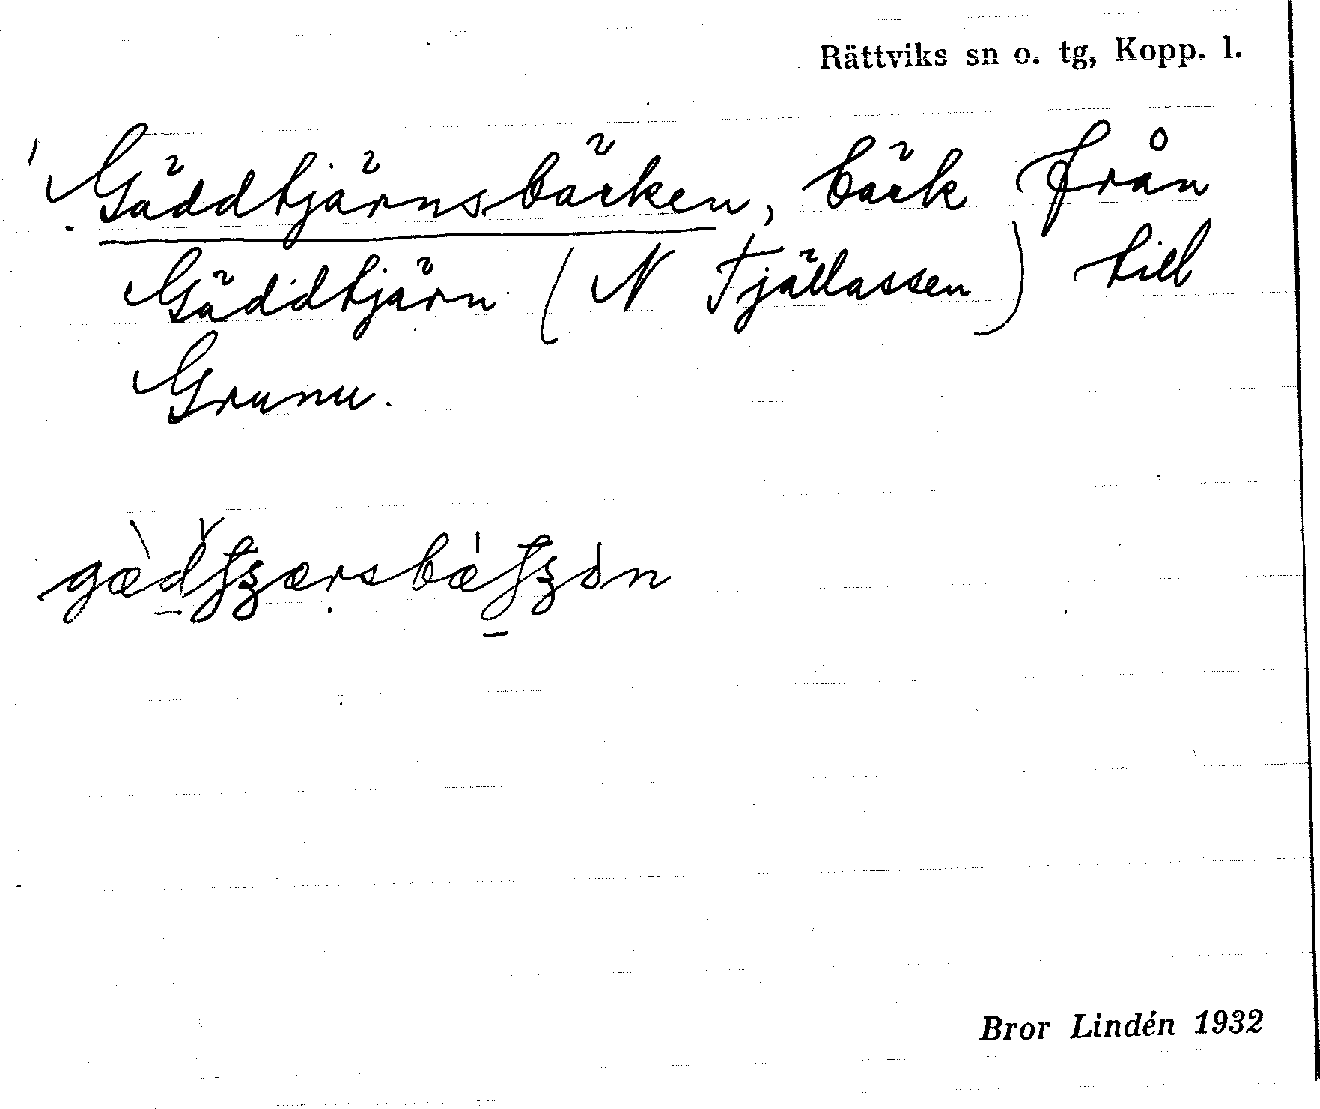 Rättviks sn o. tg, Kopp. l.
Gäddtjärnsbäcken, bäck från
Gäddtjärn (N Fjällassen) till
Grunu.
Bror Lindén 1932